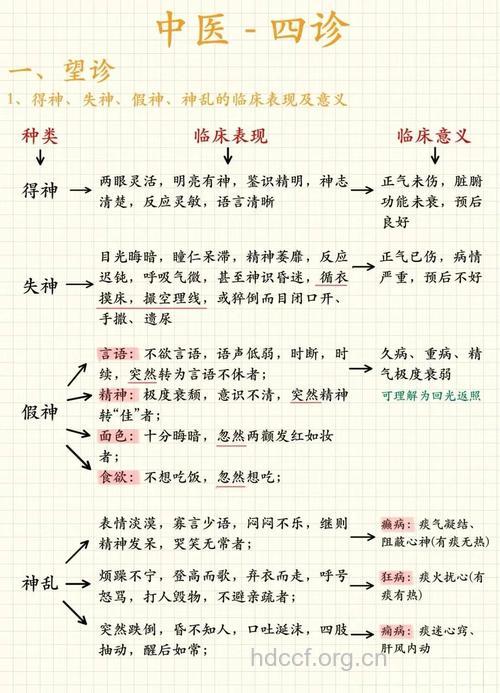 中医-四诊
一、望诊
1、得神、失神、假神、神乱的临床表现及意义
种类 临床表现 临床意义
得神
两眼灵活，明亮有神，鉴识精明，神志
清楚，反应灵敏，语言清晰
正气未伤，脏腑
功能未衰，预后
良好
失神
目光晦暗，瞳仁呆滞，精神萎靡，反应
迟钝，呼吸气微，甚至神识昏迷，循衣
摸床，撮空理线，或猝倒而目闭口开、
手撒、遗尿
正气已伤，病情
严重，预后不好
假神
言语：不欲言语，语声低弱，时断，时
续，突然转为言语不休者；
精神：极度衰颓，意识不清，突然精神
转“佳”者；
面色：十分晦暗，忽然两颧发红如妆
者；
食欲：不想吃饭，忽然想吃；
久病、重病、精
气极度衰弱
可理解为回光返照
神乱
表情淡漠，寡言少语，闷闷不乐，继则
精神发呆，哭笑无常者；
癫病：痰气凝结、
阻蔽心神(有痰无热)
烦躁不宁，登高而歌，弃衣而走，呼号
怒骂，打人毁物，不避亲疏者；
狂病：痰火扰心(有
痰有热)
突然跌倒，昏不知人，口吐涎沫，四肢
抽动，醒后如常；
痫病：痰迷心窍、
肝风内动
hdccf.org.cn